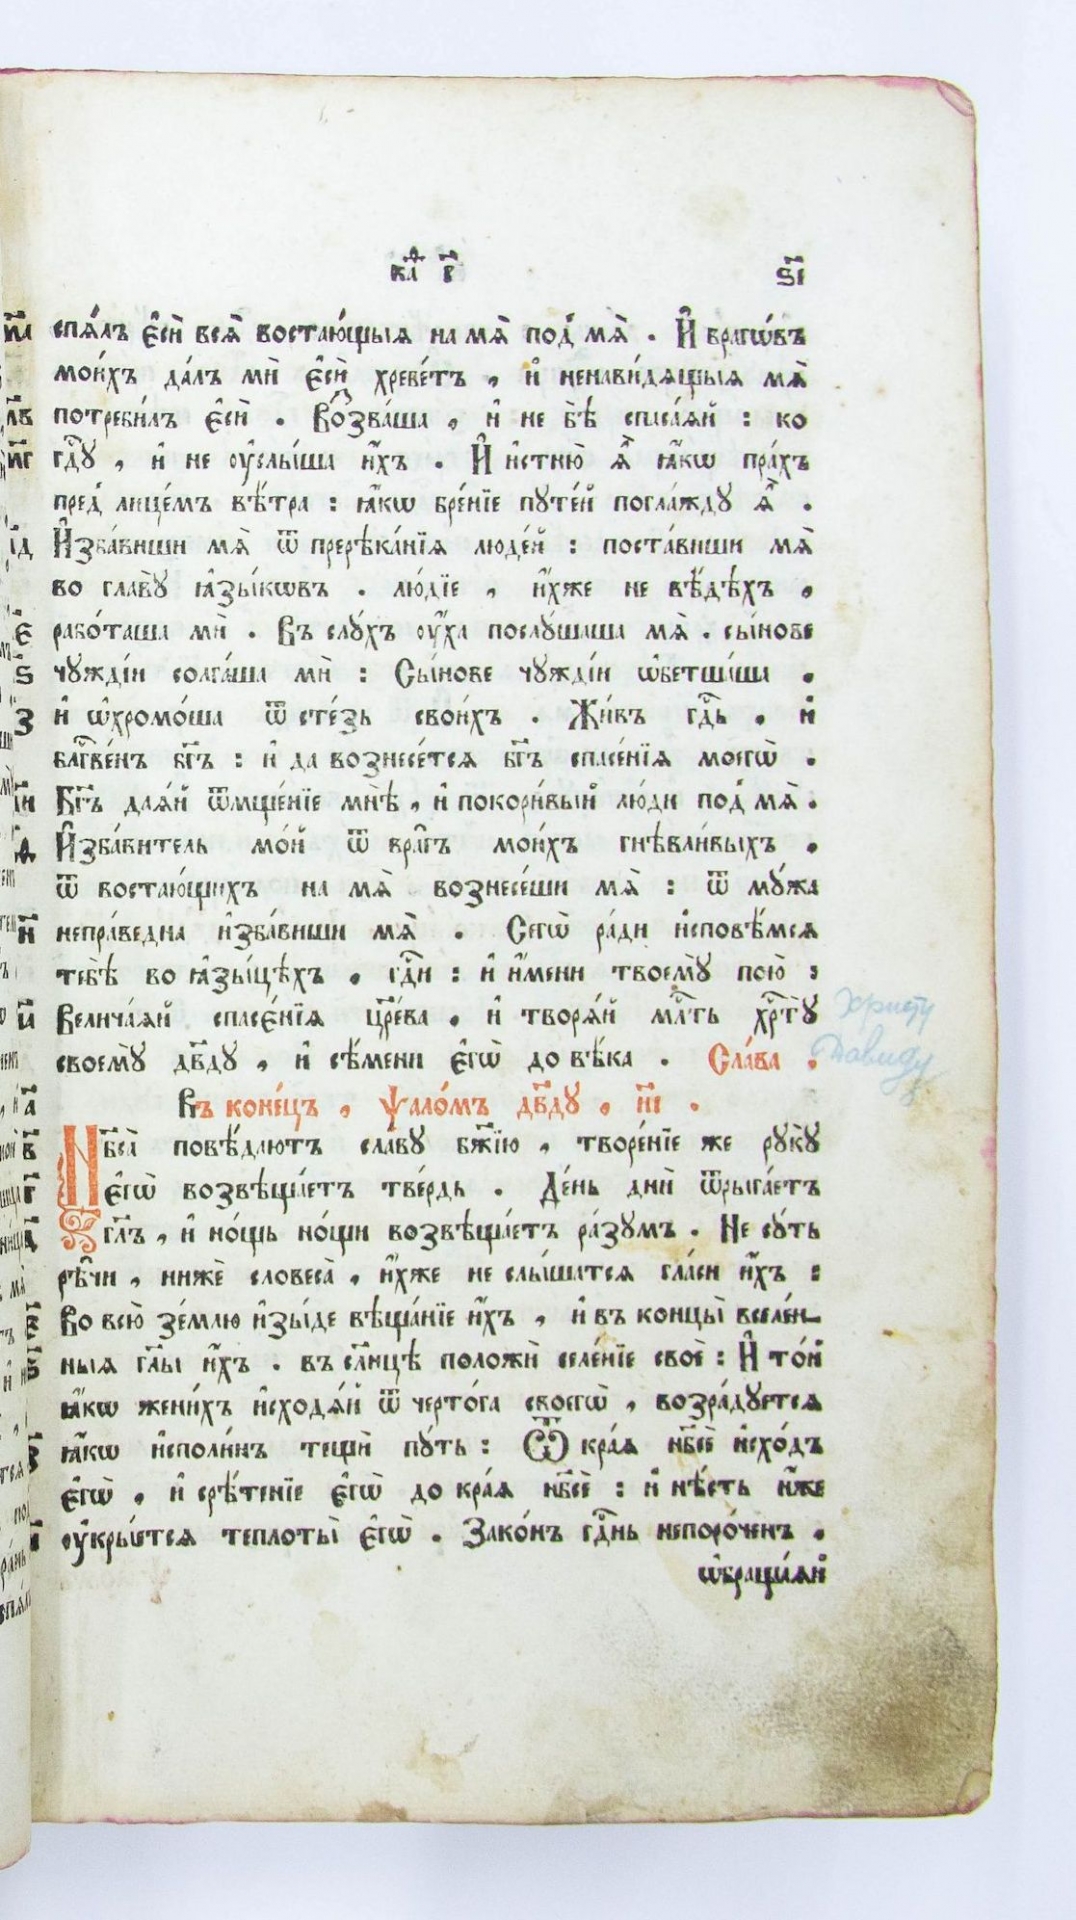 каѳ г҃ ѕ҃і
спѧ́лъ є҆сѝ всѧ̀ востаю́щыѧ на мѧ̀ под̾ мѧ̀ . И҆ врагѡ́въ
мои́хъ да́лъ мѝ є҆сѝ хребе́тъ , и҆ ненави́дѧщыѧ мѧ̀
потреби́лъ є҆сѝ . Воззва́ша , и҆ не бѣ̀ спаса́ѧй : ко
гдⷭ҇ꙋ , и҆ не оу҆слы́ша и҆́хъ . И҆ и҆стню̀ ѧ҆̀ ꙗ҆́кѡ пра́хъ
пред̾ лице́мъ вѣ́тра : ꙗ҆́кѡ бре́нїе пꙋте́й погла́ждꙋ ѧ҆̀ .
И҆зба́виши мѧ̀ ѿ пререка́нїѧ люде́й : поста́виши мѧ̀
во главꙋ̀ ꙗ҆зы́кѡвъ . лю́дїе , и҆́хже не вѣ́дѣхъ ,
рабо́таша мѝ . Въ слꙋ́хъ оу҆́ха послꙋ́шаша мѧ̀ . сы́нове
чꙋжді́и солга́ша мѝ : Сы́нове чꙋжді́и ѡ҆бетша́ша .
и҆ ѡ҆хромо́ша ѿ сте́зь свои́хъ . Жи́въ гдⷭ҇ь . и҆
блгⷭ҇ве́нъ бг҃ъ : и҆ да вознесе́тсѧ бг҃ъ спасе́нїѧ моегѡ̀ .
Бг҃ъ даѧ́й ѿмще́нїе мнѣ̀ , и҆ покори́вый лю́ди под̾ мѧ̀ .
И҆зба́витель мо́й ѿ вра́гъ мои́хъ гнѣвли́выхъ .
ѿ востаю́щихъ на мѧ̀ вознесе́ши мѧ̀ : ѿ мꙋ́жа
непра́ведна и҆зба́виши мѧ̀ . Сегѡ̀ ра́ди и҆сповѣ́мсѧ
тебѣ̀ во ꙗ҆зы́цѣхъ . гдⷭ҇и : и҆ и҆́мени твоемꙋ̀ пою̀ :
Велича́ѧй спасе́нїѧ цр҃е́ва . и҆ творѧ́й млⷭ҇ть хрⷭ҇тꙋ̀ Христу
своемꙋ̀ дв҃дꙋ , и҆ сѣ́мени є҆гѡ̀ до вѣ́ка . Сла́ва . Давиду
Въ коне́цъ , ѱало́мъ дв҃дꙋ , и҃і .
Нб҃са̀ повѣ́даютъ славꙋ бж҃їю , творе́нїе же рꙋкꙋ̀
є҆гѡ̀ возвѣща́етъ тве́рдь . Де́нь дни̑ ѿрыга́етъ
гл҃ъ , и҆ но́щь но́щи возвѣща́етъ ра́зꙋмъ . Не сꙋ́ть
рѣ́чи , нижѐ словеса̀ , и҆́хже не слы́шатсѧ гла́си и҆́хъ :
Во всю̀ зе́млю и҆зы́де вѣща́нїе и҆́хъ , и҆ въ концы̀ вселе́н
ныѧ гл҃ы и҆́хъ . въ сл҃нцѣ положѝ селе́нїе своѐ : И҆ то́й
ꙗ҆́кѡ жени́хъ и҆сходѧ́й ѿ черто́га своегѡ̀ , возра́дꙋетсѧ
ꙗ҆́кѡ и҆споли́нъ тещѝ пꙋ́ть : Ѿ кра́ѧ нб҃сѐ и҆схо́дъ
є҆гѡ̀ , и҆ срѣ́тенїе є҆гѡ̀ до кра́ѧ нб҃сѐ : и҆ нѣ́сть и҆́же
оу҆кры́етсѧ теплоты̀ є҆гѡ̀ . Зако́нъ гдⷭ҇нь непоро́ченъ .
ѡ҆браща́ѧй